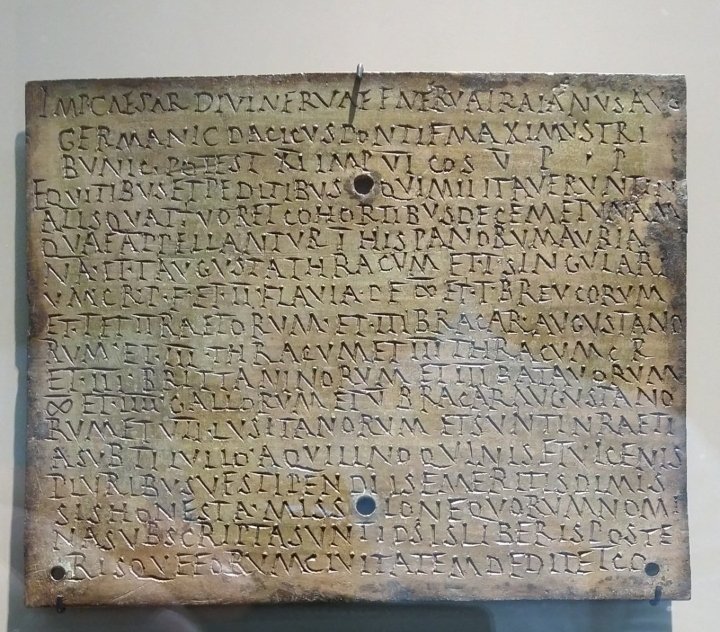 IMP CAESAR DIVI NERVAE F NERVA TRAIANUS AVG
GERMANIC DACICVS PONTIF MAXIMVS TRI
BVNIC POTEST XI IMP VI COS V P P
EQVITIBVS ET PEDITIBVS QVI MILITAVERVNT IN
ALIS QVATTVOR ET COHORTIBVS DECEM ET VNAM
QVAE APPELLANTVR I HISPANORVM AVRIA
NA ET I AVGVSTA THRACVM ET I SINGVLARI
VM C R P F ET II FLAVIA P F ∞ ET I BREVCORVM
ET I ET II RAETORVM ET III BRACAR AVGVSTANO
RVM ET III THRACVM ET III THRACVM C R
ET III BRITTANNORVM ET III BATAVORVM
∞ ET IIII GALLORVM ET V BRACAR AVGVSTANO
RVM ET VII LVSITANORVM ET SVNT IN RAETI
A SVB TI IVLIO AQVILINO QVINIS ET VICENIS
PLVRIBVSVE STIPENDIIS EMERITIS DIMIS
SIS HONESTA MISSIONE QVORVM NOMI
NA SVBSCRIPTA SVNT IPSIS LIBERIS POSTE
RISQVE EORVM CIVITATEM DEDIT ET CO